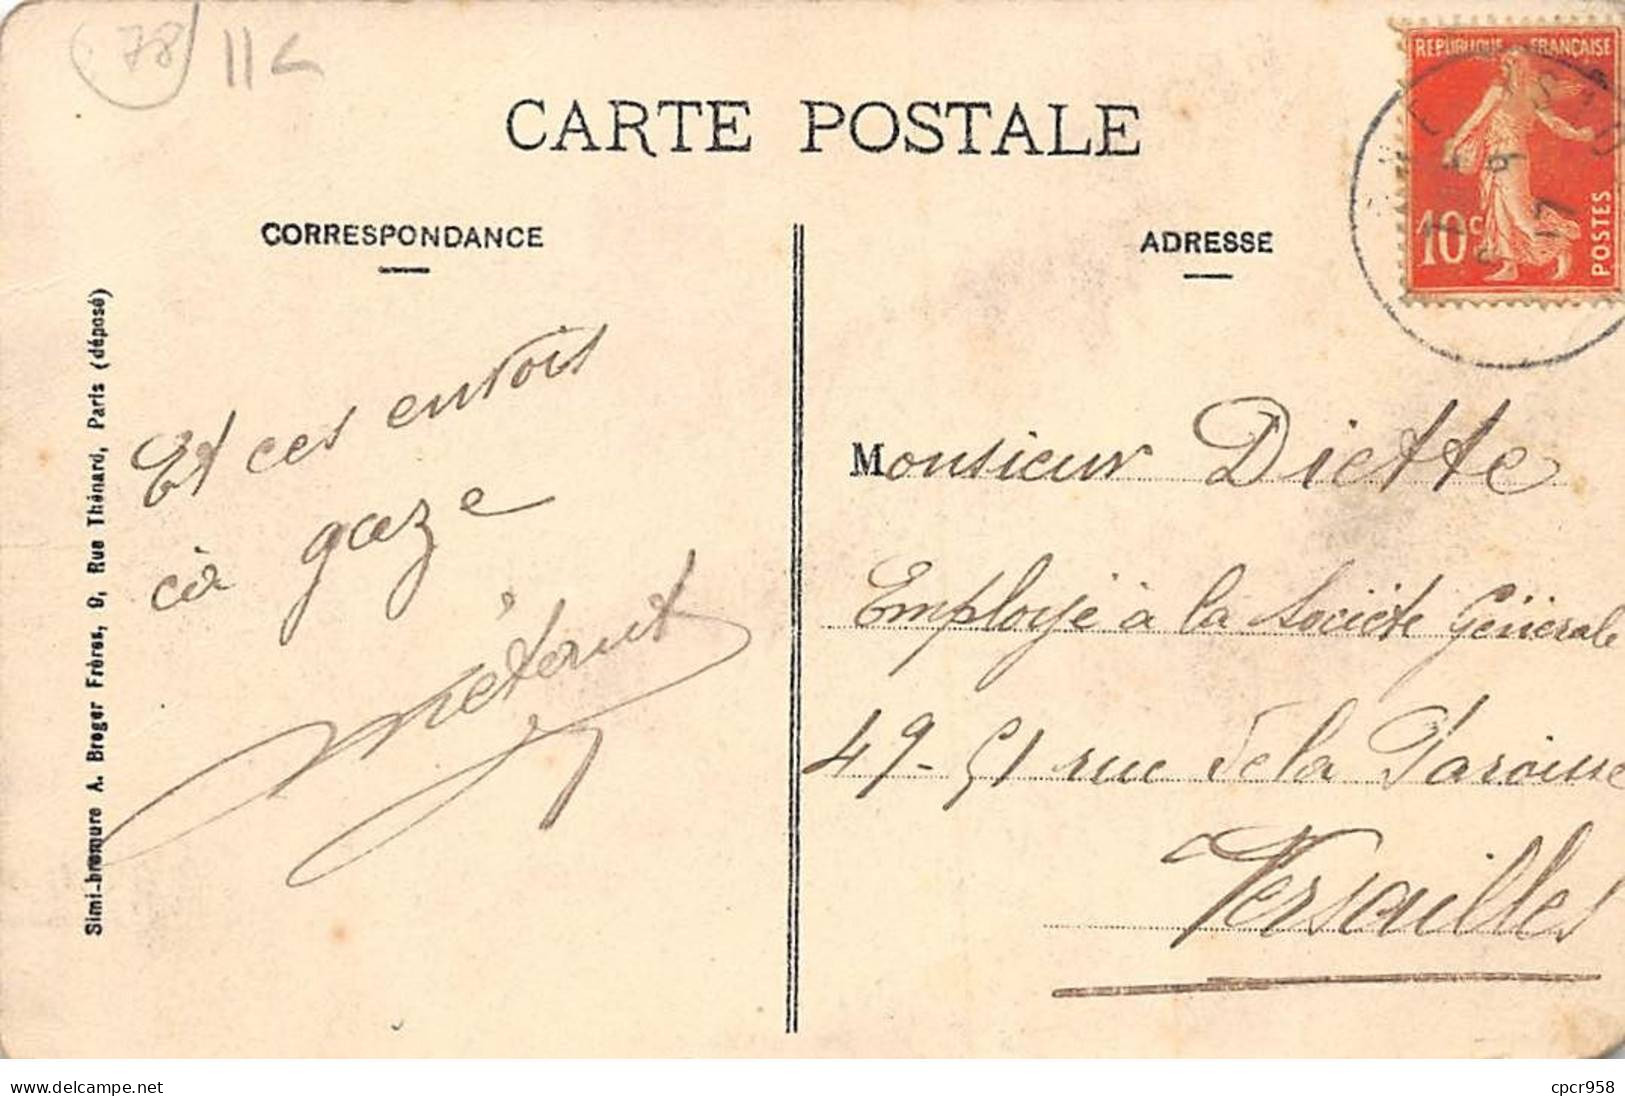 78 11
CARTE POSTALE
REPUBLIQUE FRANÇAISE
10c
POSTES
CORRESPONDANCE
ADRESSE
Simi-bromure A. Breger Frères, 9, Rue Thénard, Paris (déposé)
Et ces envois
ça gaze
Monsieur Diette
Employé à la Société Générale
49-51 rue de la Paroisse
Versailles
delcampe.net
cpcr958